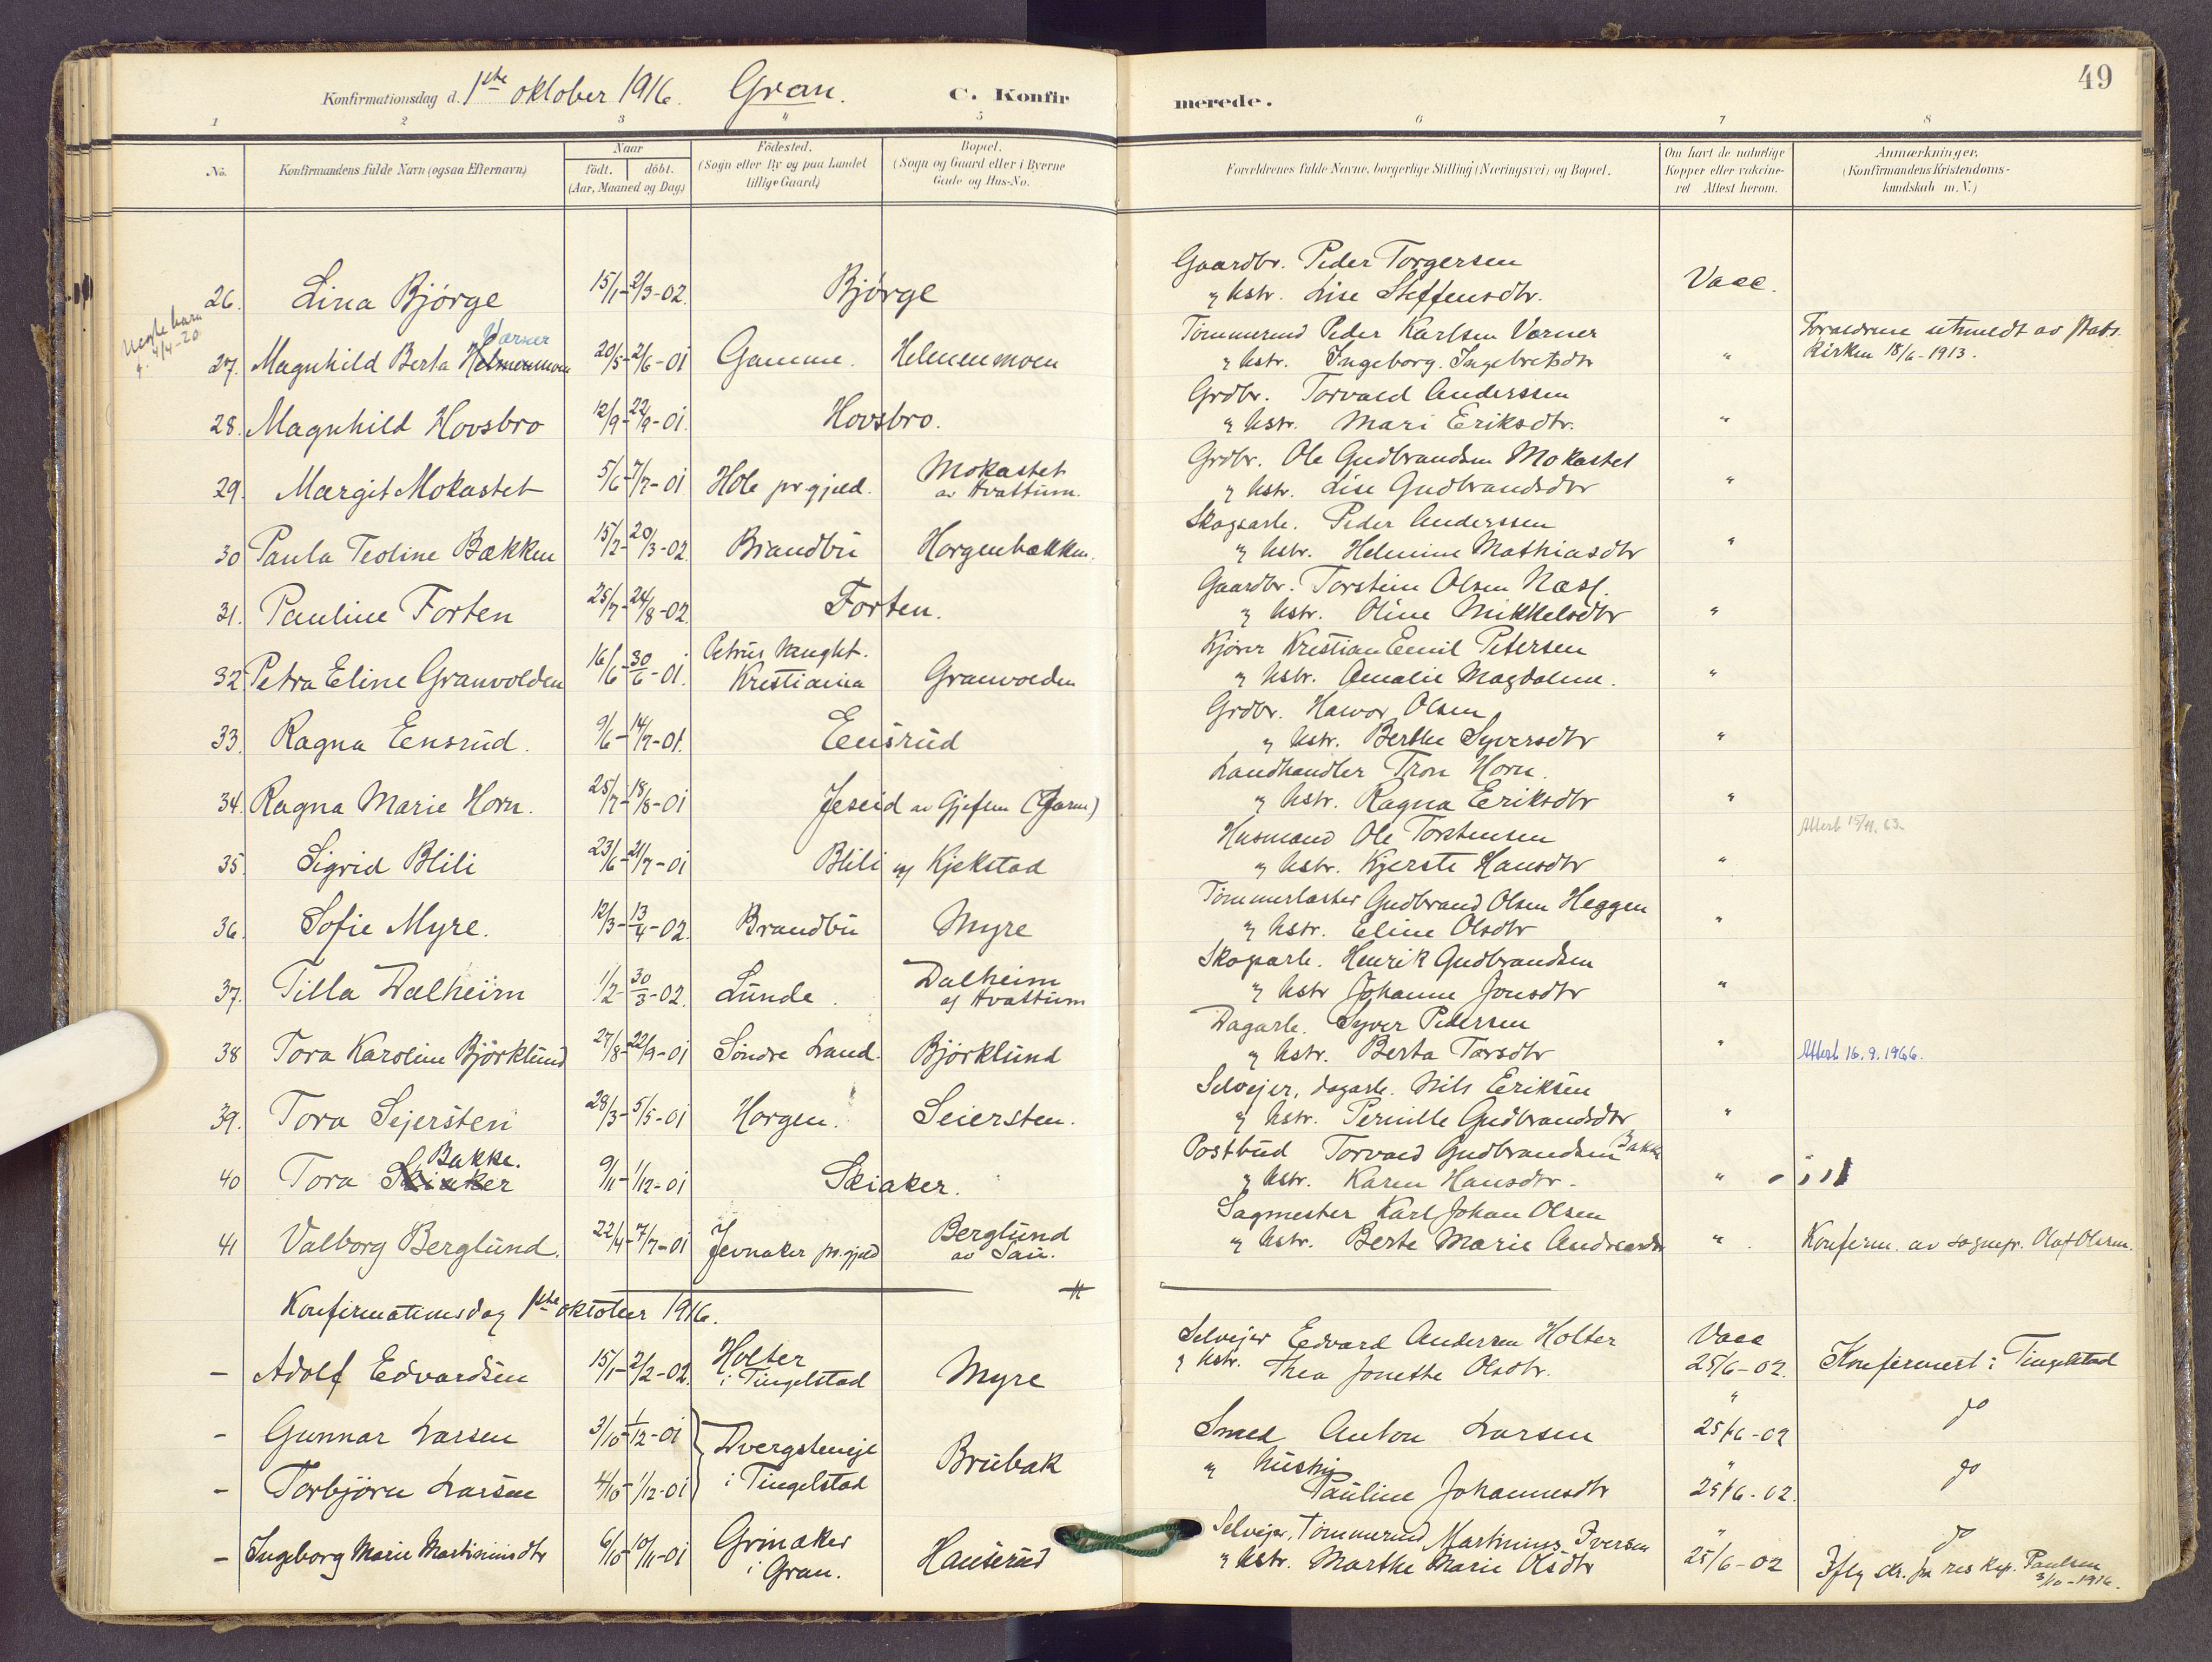 49
Konfirmationsdag d. 1ste oktober 1916. Gran. C. Konfirmerede.
1 2 3 4 5 6 7 8
No. Konfirmandens fulde Navn (ogsaa Efternavn) Naar födt. döbt. (Aar, Maaned og Dag) Födested. (Sogn eller By og paa Landet tillige Gaard) Bopæl. (Sogn og Gaard eller i Byerne Gade og Hus-No. Forældrenes fulde Navne, borgerlige Stilling (Næringsvei) og Bopæl. Om havt de naturlige Kopper eller vakcineret Attest herom. Anmærkninger. (Konfirmandens Kristendomskundskab m. V.)
Gaardbr. Peder Torgersen
26. Lina Bjørge 15/1 - 2/3-02. Bjørge " hstr. Lise Steffensdtr. Vacc.
4/4-20
Varner
Tømmermd Peder Karlsen Varner Forældrene utmeldt av stats
27. Magnhild Berta Helmenmoen 20/5 - 2/6-01 Gamme. Helmenmoen " hstr. Ingeborg Ingebretsdtr " kirken 18/6-1913.
Grdbr. Torvald Anderssen
28. Magnhild Hovsbro 12/9 - 22/9-01. Hovsbro. " hstr. Mari Eriksdtr. "
Grdbr. Ole Gudbrandsen Mokastet
29. Margit Mokastet 5/6 - 7/7-01 Hole pr.gjeld. Mokastet av Hvattum. " hstr. Lise Gudbrandsdtr "
Skogsarb. Peder Anderssen
30 Paula Teoline Bækken 15/2 - 20/3-02. Brandbu Horgenbækken. " hstr. Helmine Mathiasdtr "
Gaardbr. Torstein Olsen Næsl.
31. Pauline Forten 25/7 - 24/8-02. Forten. " hstr. Oline Mikkelsdtr "
Kjører Kristian Emil Petersen
32 Petra Eline Granvolden 16/6 - 30/6-01. Petrus mught. Kristiania Granvolden " hstr. Amalie Magdalene. "
Grdbr. Hawor Olsen
33. Ragna Eensrud. 9/6 - 14/7-01. Eensrud " hstr. Berthe Syversdtr "
Landhandler Tron Horn.
34. Ragna Marie Horn. 25/7 - 18/8-01 Jeseid av Gjefsen (Jaren) " hstr. Ragna Eriksdtr "
Husmand Ole Torstensen Attest 15/11.63.
35. Sigrid Blili 23/6 - 21/7-01 Blili af Kjekstad " hstr. Kjersti Hansdtr "
Tømmerlaster Gudbrand Olsen Heggen
36. Sofie Myre. 12/3 - 13/4-02. Brandbu Myre " hstr. Eline Olsdtr "
Skogarb. Henrik Gudbrandsen
37. Tilla Dalheim 1/2 - 30/3-02. Lunde. Dalheim af Hvattum " hstr Johanne Jonsdtr "
Dagarb. Syver Pedersen
38 Tora Karoline Bjørklund 27/8 - 22/9-01 Søndre Land. Bjørklund " hstr. Berta Tarsdtr " Attest 16.9.1966.
Selvejer, dagarb. Nils Eriksen
39. Tora Sejersten 28/3 - 5/5-01 Horgen. Seiersten. " hstr. Pernille Gudbrandsdtr "
Bakke.
Postbud Torvald Gudbrandsen Bakke
40 Tora Skiaker 9/11 - 1/12-01 Skiaker. " hstr. Karen Hansdtr. "
Sagmester Karl Johan Olsen
41 Valborg Berglund. 22/4 - 7/7-01 Jevnaker pr.gjeld Berglund av San. " hstr. Berte Marie Andreasdtr " Konfirm. av sognepr. Olaf Olsen.
Konfirmationsdag 1ste oktober 1916.
Selvejer Edvard Andersen Holter Vacc
- Adolf Edvardsen 15/1 - 2/2-02. Holter i Tingelstad Myre " hstr. Thea Jonette Olsdtr. 25/6-02. Konfirmert i Tingelstad
- Gunnar Larsen 3/10 - 1/12-01 Dvergsteneje i Tingelstad Brubak Smed Anton Larsen " 25/6-02 do
- Torbjørn Larsen 4/10 - 1/12-01 " hustru Pauline Johannesdtr " 25/6-02. do
Selvejer, Tømmermd Martinius Iversen " do
- Ingeborg Marie Martiniusdtr 6/10 - 10/11-01 Grinaker i Gran. Hanserud " hstr. Marthe Marie Olsdtr 25/6-02 Iflg skr. fra res kap. Paulsen 3/10-1916.